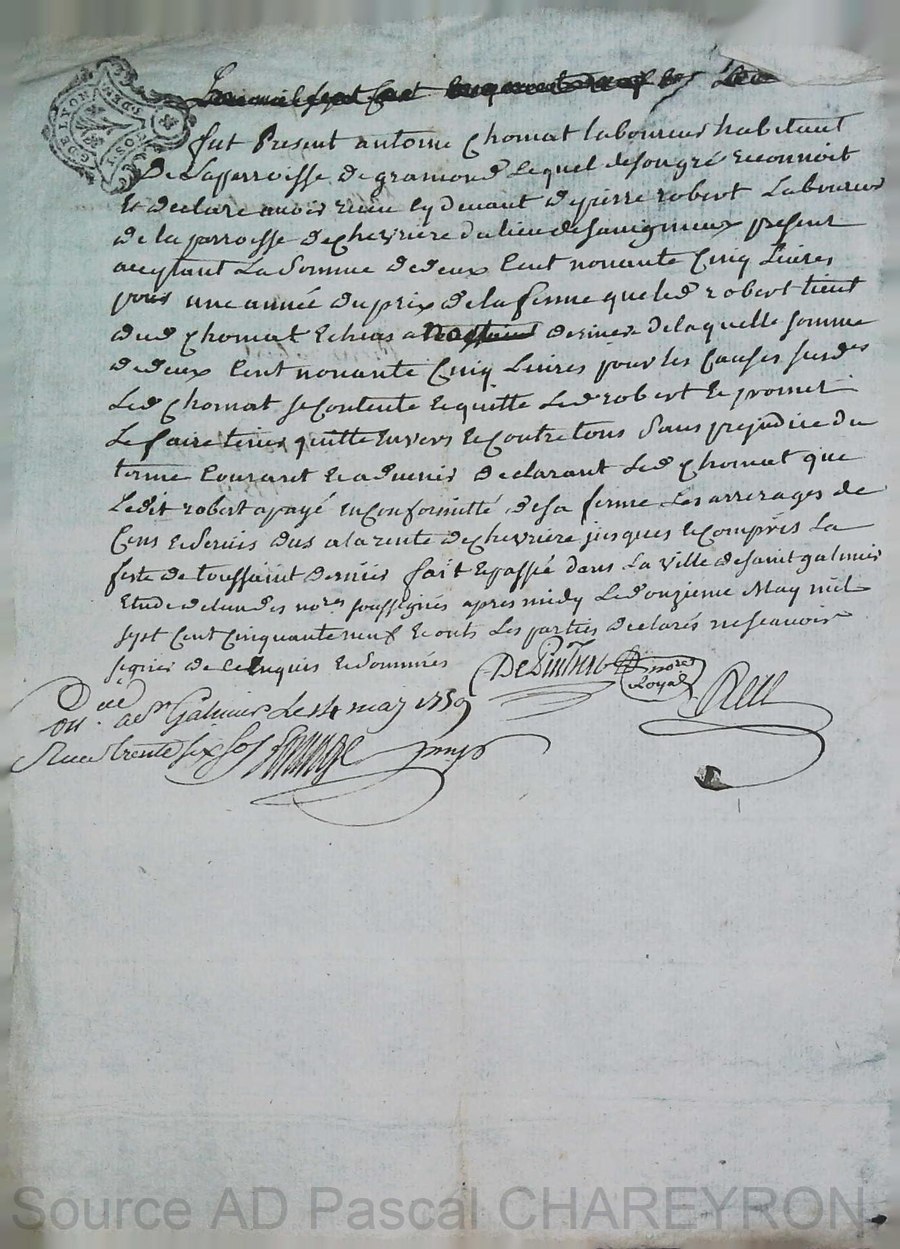 G DE LYON
fut Present antoine Chomat laboureur habitant
De Laparroisse de gramond Lequel desongré reconnoit
Et declare avoir receu cy devant de pierre robert Laboureur
de la parroisse de chevriere du lieu de savigneux present
acceptant La Somme de deux Cent nonante Cinq Livres
pour une année du prix de la ferme que led robert tient
dud Chomat Echeus a derniere de laquelle somme
de deux Cent nonante Cinq Livres pour les Causes susdes
Led Chomat se Contente Et quitte Led robert Et promet
Le faire tenir quitte Envers Et Contre tous Sans prejudice du
terme Courant Et advenir Declarant Led Chomat que
Ledit robert a payé En Conformitté de sa ferme Les arrerages de
Cens Et servis dus a la rente de chevriere jusques Et Compris La
feste de toussaint dernier fait Et passé dans La ville de saint galmier
Etude de lun des nores soussignés apres midy Le douzieme May mil
sept Cent Cinquante neuf Et ont Les parties declarés ne scavoir
signer de ce Enquis Et Sommés
nore Royal
a St Galmier Le 14 may 1759
Receu trente six sols
Source AD Pascal CHAREYRON